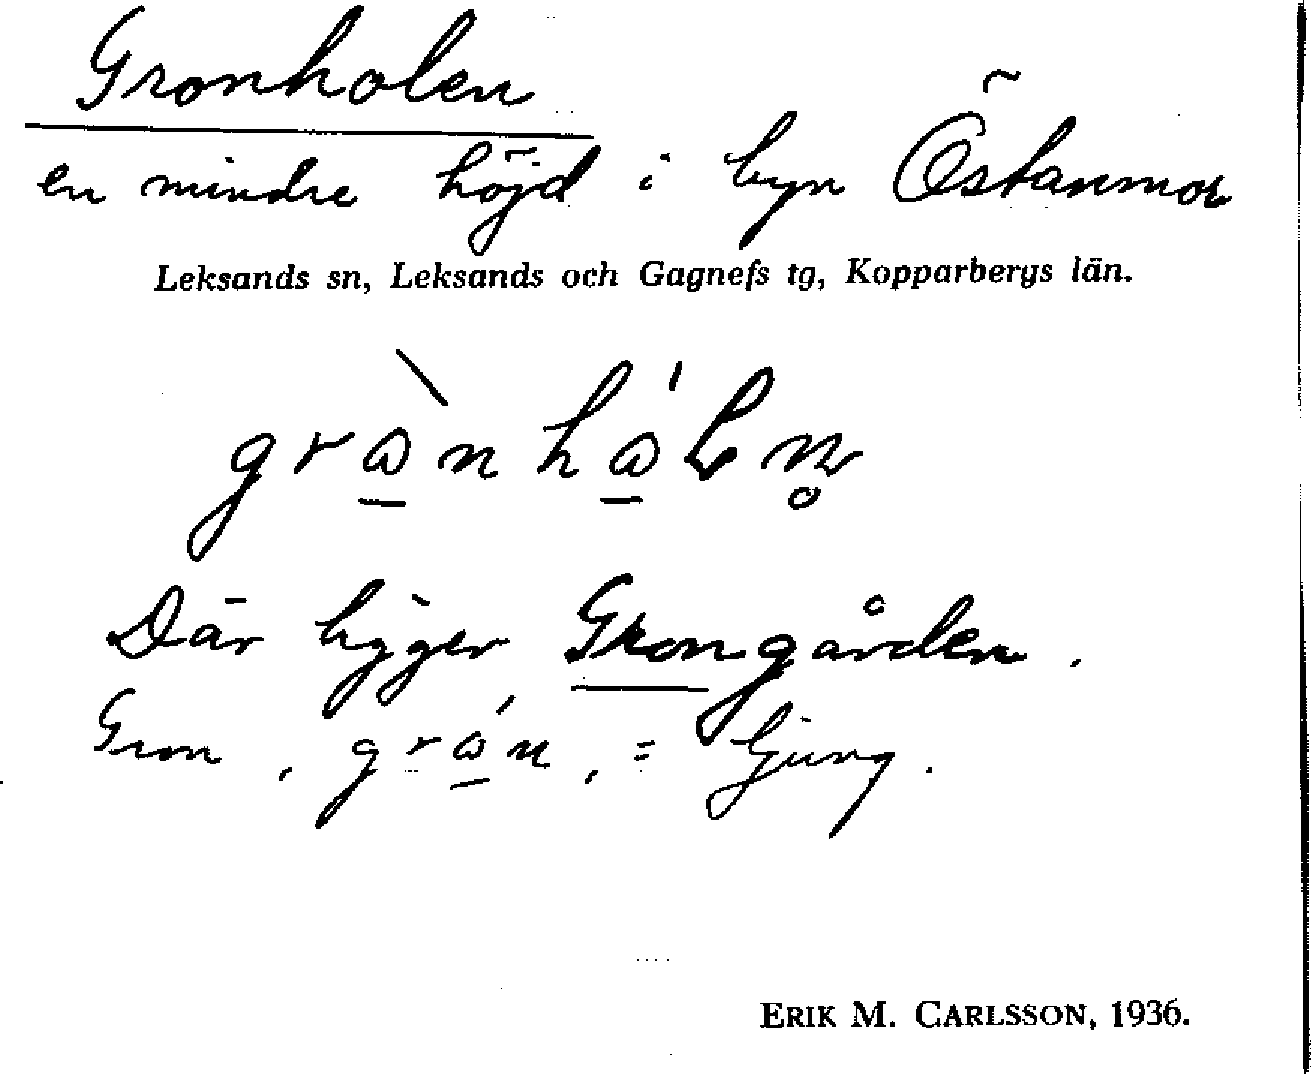 Gronholen
en mindre höjd i byn Östanmor
Leksands sn, Leksands och Gagnefs tg, Kopparbergs län.
Där ligger Grongården.
Gron, = ljung.
ERIK M. CARLSSON, 1936.